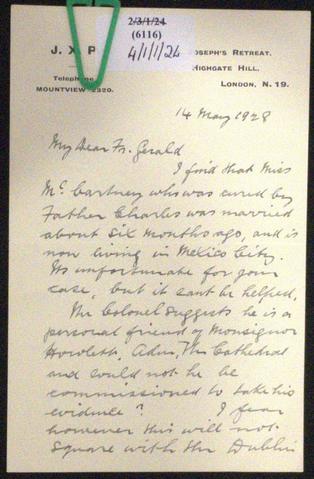 2/3/1/24
(6116)
4/1/1/24
J. X. P
OSEPH'S RETREAT,
HIGHGATE HILL,
LONDON, N. 19.
Telephone
MOUNTVIEW 2320.
14 May 1928
My Dear Fr. Gerald
I find that Miss
McCartney who was cured by
Father Charles was married
about six months ago, and is
now living in Mexico City.
Its unfortunate for your
case, but it cant be helped.
The Colonel suggests he is a
personal friend of Monsignor
Howleth. Adm, The Cathedral
and could not he be
commissioned to take his
evidence? I fear
however this will not
square with the Dublin